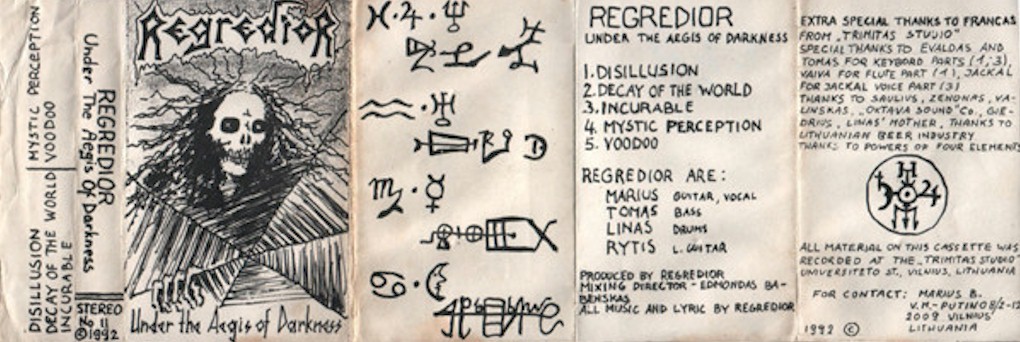 DISILLUSION
DECAY OF THE WORLD
INCURABLE
MYSTIC PERCEPTION
VOODOO
REGREDIOR
Under The Aegis Of Darkness
STEREO
©1992
Regredior
Under the Aegis of Darkness
REGREDIOR
UNDER THE AEGIS OF DARKNESS
1. DISILLUSION
2. DECAY OF THE WORLD
3. INCURABLE
4. MYSTIC PERCEPTION
5. VOODOO
REGREDIOR ARE:
MARIUS GUITAR, VOCAL
TOMAS BASS
LINAS DRUMS
RYTIS L. GUITAR
PRODUCED BY REGREDIOR
MIXING DIRECTOR - EDMONDAS BA-
BENSKAS
ALL MUSIC AND LYRIC BY REGREDIOR
EXTRA SPECIAL THANKS TO FRANCAS
FROM „TRIMITAS STUDIO"
SPECIAL THANKS TO EVALDAS AND
TOMAS FOR KEYBORD PARTS (1,3),
VAIVA FOR FLUTE PART (1), JACKAL
FOR JACKAL VOICE PART (3)
THANKS TO SAULIUS, ZENONAS, VA-
LINSKAS, „OKTAVA SOUND" Co., GIE-
DRIUS, LINAS' MOTHER, THANKS TO
LITHUANIAN BEER INDUSTRY
THANKS TO POWERS OF FOUR ELEMENTS
ALL MATERIAL ON THIS CASSETTE WAS
RECORDED AT THE „TRIMITAS STUDIO"
UNIVERSITETO ST., VILNIUS, LITHUANIA
FOR CONTACT: MARIUS B.
V.M.-PUTINO 8/2-12
2009 VILNIUS
LITHUANIA
1992 ©